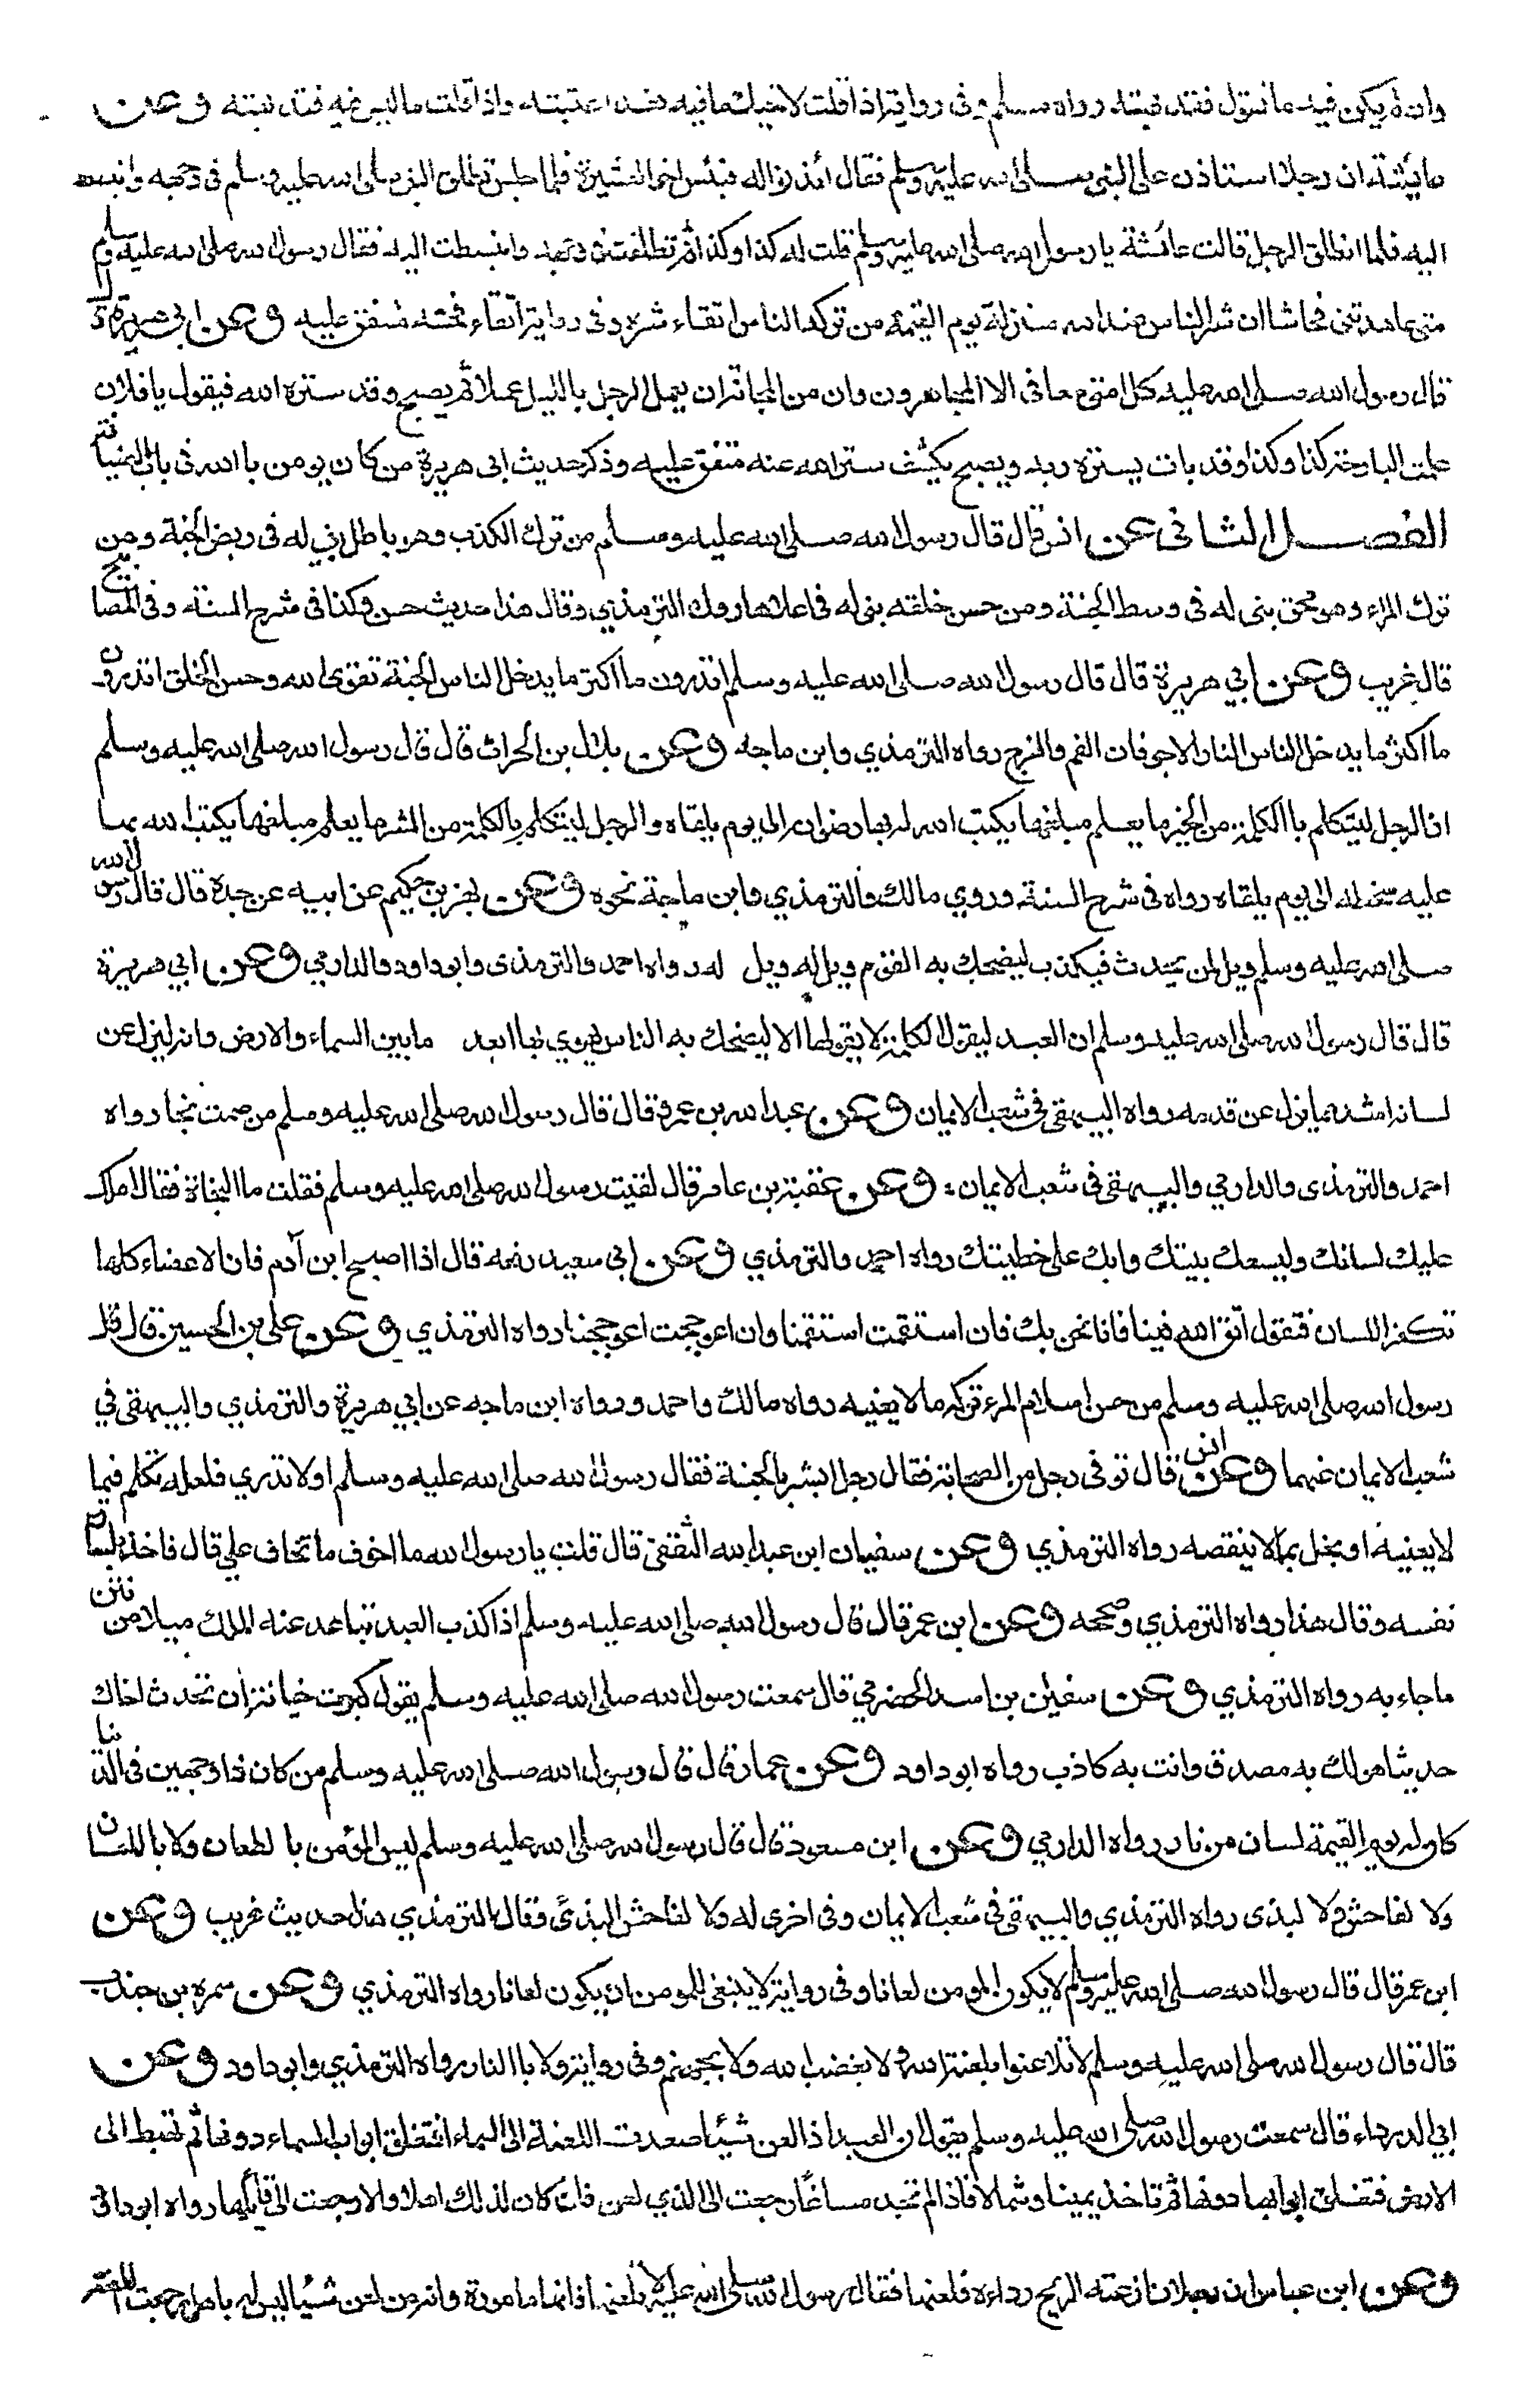 وان لم يكن فيه ما تقول فقد بهته رواه مسلم وفى رواية اذا قلت لاخيك ما فيه فقد اغتبته واذا قلت ما ليس فيه فقد بهته وعن
عايشة ان رجلا استاذن على النبى صلى الله عليه وسلم فقال ائذنوا له فبئس اخو العشيرة فلما جلس تطلق النبى صلى الله عليه وسلم فى وجهه وانبسط
اليه فلما انطلق الرجل قالت عائشة يا رسول الله صلى الله عليه وسلم قلت له كذا وكذا ثم تطلقت فى وجهه وانبسطت اليه فقال رسول الله صلى الله عليه وسلم
متى عاهدتنى فحاشا ان شر الناس عند الله منزلة يوم القيمة من تركه الناس اتقاء شره وفى رواية اتقاء فحشه متفق عليه وعن ابي هريرة قال
قال رسول الله صلى الله عليه كل امتى معافى الا المجاهرون وان من المجانة ان يعمل الرجل بالليل عملا ثم يصبح وقد ستره الله فيقول يا فلان
عملت البارحة كذا وكذا وقد بات يستره ربه ويصبح يكشف ستر الله عنه متفق عليه وذكر حديث ابى هريرة من كان يومن باالله فى باب الضيافة
الفصل الثانى عن انس قال قال رسول الله صلى الله عليه وسلم من ترك الكذب وهو باطل بني له فى ربض الجنة ومن
ترك المراء وهو محق بنى له فى وسط الجنة ومن حسن خلقه بنى له فى اعلاها رواه الترمذي وقال هذا حديث حسن وكذا فى شرح السنة وفى المصابيح
قال غريب وعن ابي هريرة قال قال رسول الله صلى الله عليه وسلم اتدرون ما اكثر ما يدخل الناس الجنة تقوى الله وحسن الخلق اتدرون
ما اكثر ما يدخل الناس النار الاجوفان الفم والفرج رواه الترمذي وابن ماجه وعن بلال بن الحراث قال قال رسول الله صلى الله عليه وسلم
ان الرجل ليتكلم باالكلمة من الخير ما يعلم مبلغها يكتب الله له بها رضوانه الى يوم يلقاه والرجل ليتكلم بالكلمة من الشر ما يعلم مبلغها يكتب الله بها
عليه سخطه الى يوم يلقاه رواه فى شرح السنة وروي مالك والترمذي وابن ماجة نحوه وعن بهز بن حكيم عن ابيه عن جده قال قال رسول الله
صلى الله عليه وسلم ويل لمن يحدث فيكذب ليضحك به القوم ويل له ويل له رواه احمد والترمذى وابو داود والدارمي وعن ابي هريرة
قال قال رسول الله صلى الله عليه وسلم ان العبد ليقول الكلمة لا يقولها الا ليضحك به الناس يهوي بها ابعد ما بين السماء والارض وانه ليزل عن
لسانه اشد مما يزل عن قدمه رواه البيهقى فى شعب الايمان وعن عبد الله بن عمرو قال قال رسول الله صلى الله عليه وسلم من صمت نجا رواه
احمد والترمذى والدارمي والبيهقى فى شعب الايمان وعن عقبة بن عامر قال لقيت رسول الله صلى الله عليه وسلم فقلت ما النجاة فقال املك
عليك لسانك وليسعك بيتك وابك على خطيئتك رواه احمد والترمذي وعن ابى سعيد رفعه قال اذا اصبح ابن آدم فان الاعضاء كلها
تكفر اللسان فتقول اتق الله فينا فانا نحن بك فان استقمت استقمنا وان اعوججت اعوججنا رواه الترمذي وعن على بن الحسين قال قال
رسول الله صلى الله عليه وسلم من حسن اسلام المرء تركه ما لا يعنيه رواه مالك واحمد ورواه ابن ماجه عن ابي هريرة والترمذي والبيهقى في
شعب الايمان عنهما وعن انس قال توفى رجل من الصحابة فقال رجل ابشر بالجنة فقال رسول الله صلى الله عليه وسلم اولا تدري فلعله تكلم فيما
لا يعنيه او بخل بما لا ينقصه رواه الترمذي وعن سفيان ابن عبد الله الثقفى قال قلت يا رسول الله ما اخوف ما تخاف علي قال فاخذ بلسان
نفسه وقال هذا رواه الترمذي وصححه وعن ابن عمر قال قال رسول الله صلى الله عليه وسلم اذا كذب العبد تباعد عنه الملك ميلا من نتن
ما جاء به رواه الترمذي وعن سفين بن اسد الحضرمي قال سمعت رسول الله صلى الله عليه وسلم يقول كبرت خيانة ان تحدث اخاك
حديثا هو لك به مصدق وانت به كاذب رواه ابو داود وعن عمار قال قال رسول الله صلى الله عليه وسلم من كان ذا وجهين فى الدنيا
كان له يوم القيمة لسان من نار رواه الدارمي وعن ابن مسعود قال قال رسول الله صلى الله عليه وسلم ليس المؤمن بالطعان ولا باللعان
ولا لفاحش ولا لبذى رواه الترمذي والبيهقى فى شعب الايمان وفى اخرى له ولا لفاحش البذئ وقال الترمذي هذا حديث غريب وعن
ابن عمر قال قال رسول الله صلى الله عليه وسلم لا يكون المومن لعانا وفى رواية لا ينبغى للمومن ان يكون لعانا رواه الترمذي وعن سمرة بن جندب
قال قال رسول الله صلى الله عليه وسلم لا تلاعنوا بلعنة الله ولا بغضب الله ولا بجهنم وفى رواية ولا باالنار رواه الترمذي وابو داود وعن
ابي الدرداء قال سمعت رسول الله صلى الله عليه وسلم يقول ان العبد اذا لعن شيئا صعدت اللعنة الى السماء فتغلق ابواب السماء دونها ثم تهبط الى
الارض فتغلق ابوابها دونها ثم تاخذ يمينا وشمالا فاذا لم تجد مساغا رجعت الى الذي لعن فان كان لذلك اهلا والا رجعت الى قائلها رواه ابو داود
وعن ابن عباس ان رجلا نازعته الريح رداءه فلعنها فقال رسول الله صلى الله عليه لا تلعنها فانها مامورة وانه من لعن شيئا ليس له باهل رجعت اللعنة